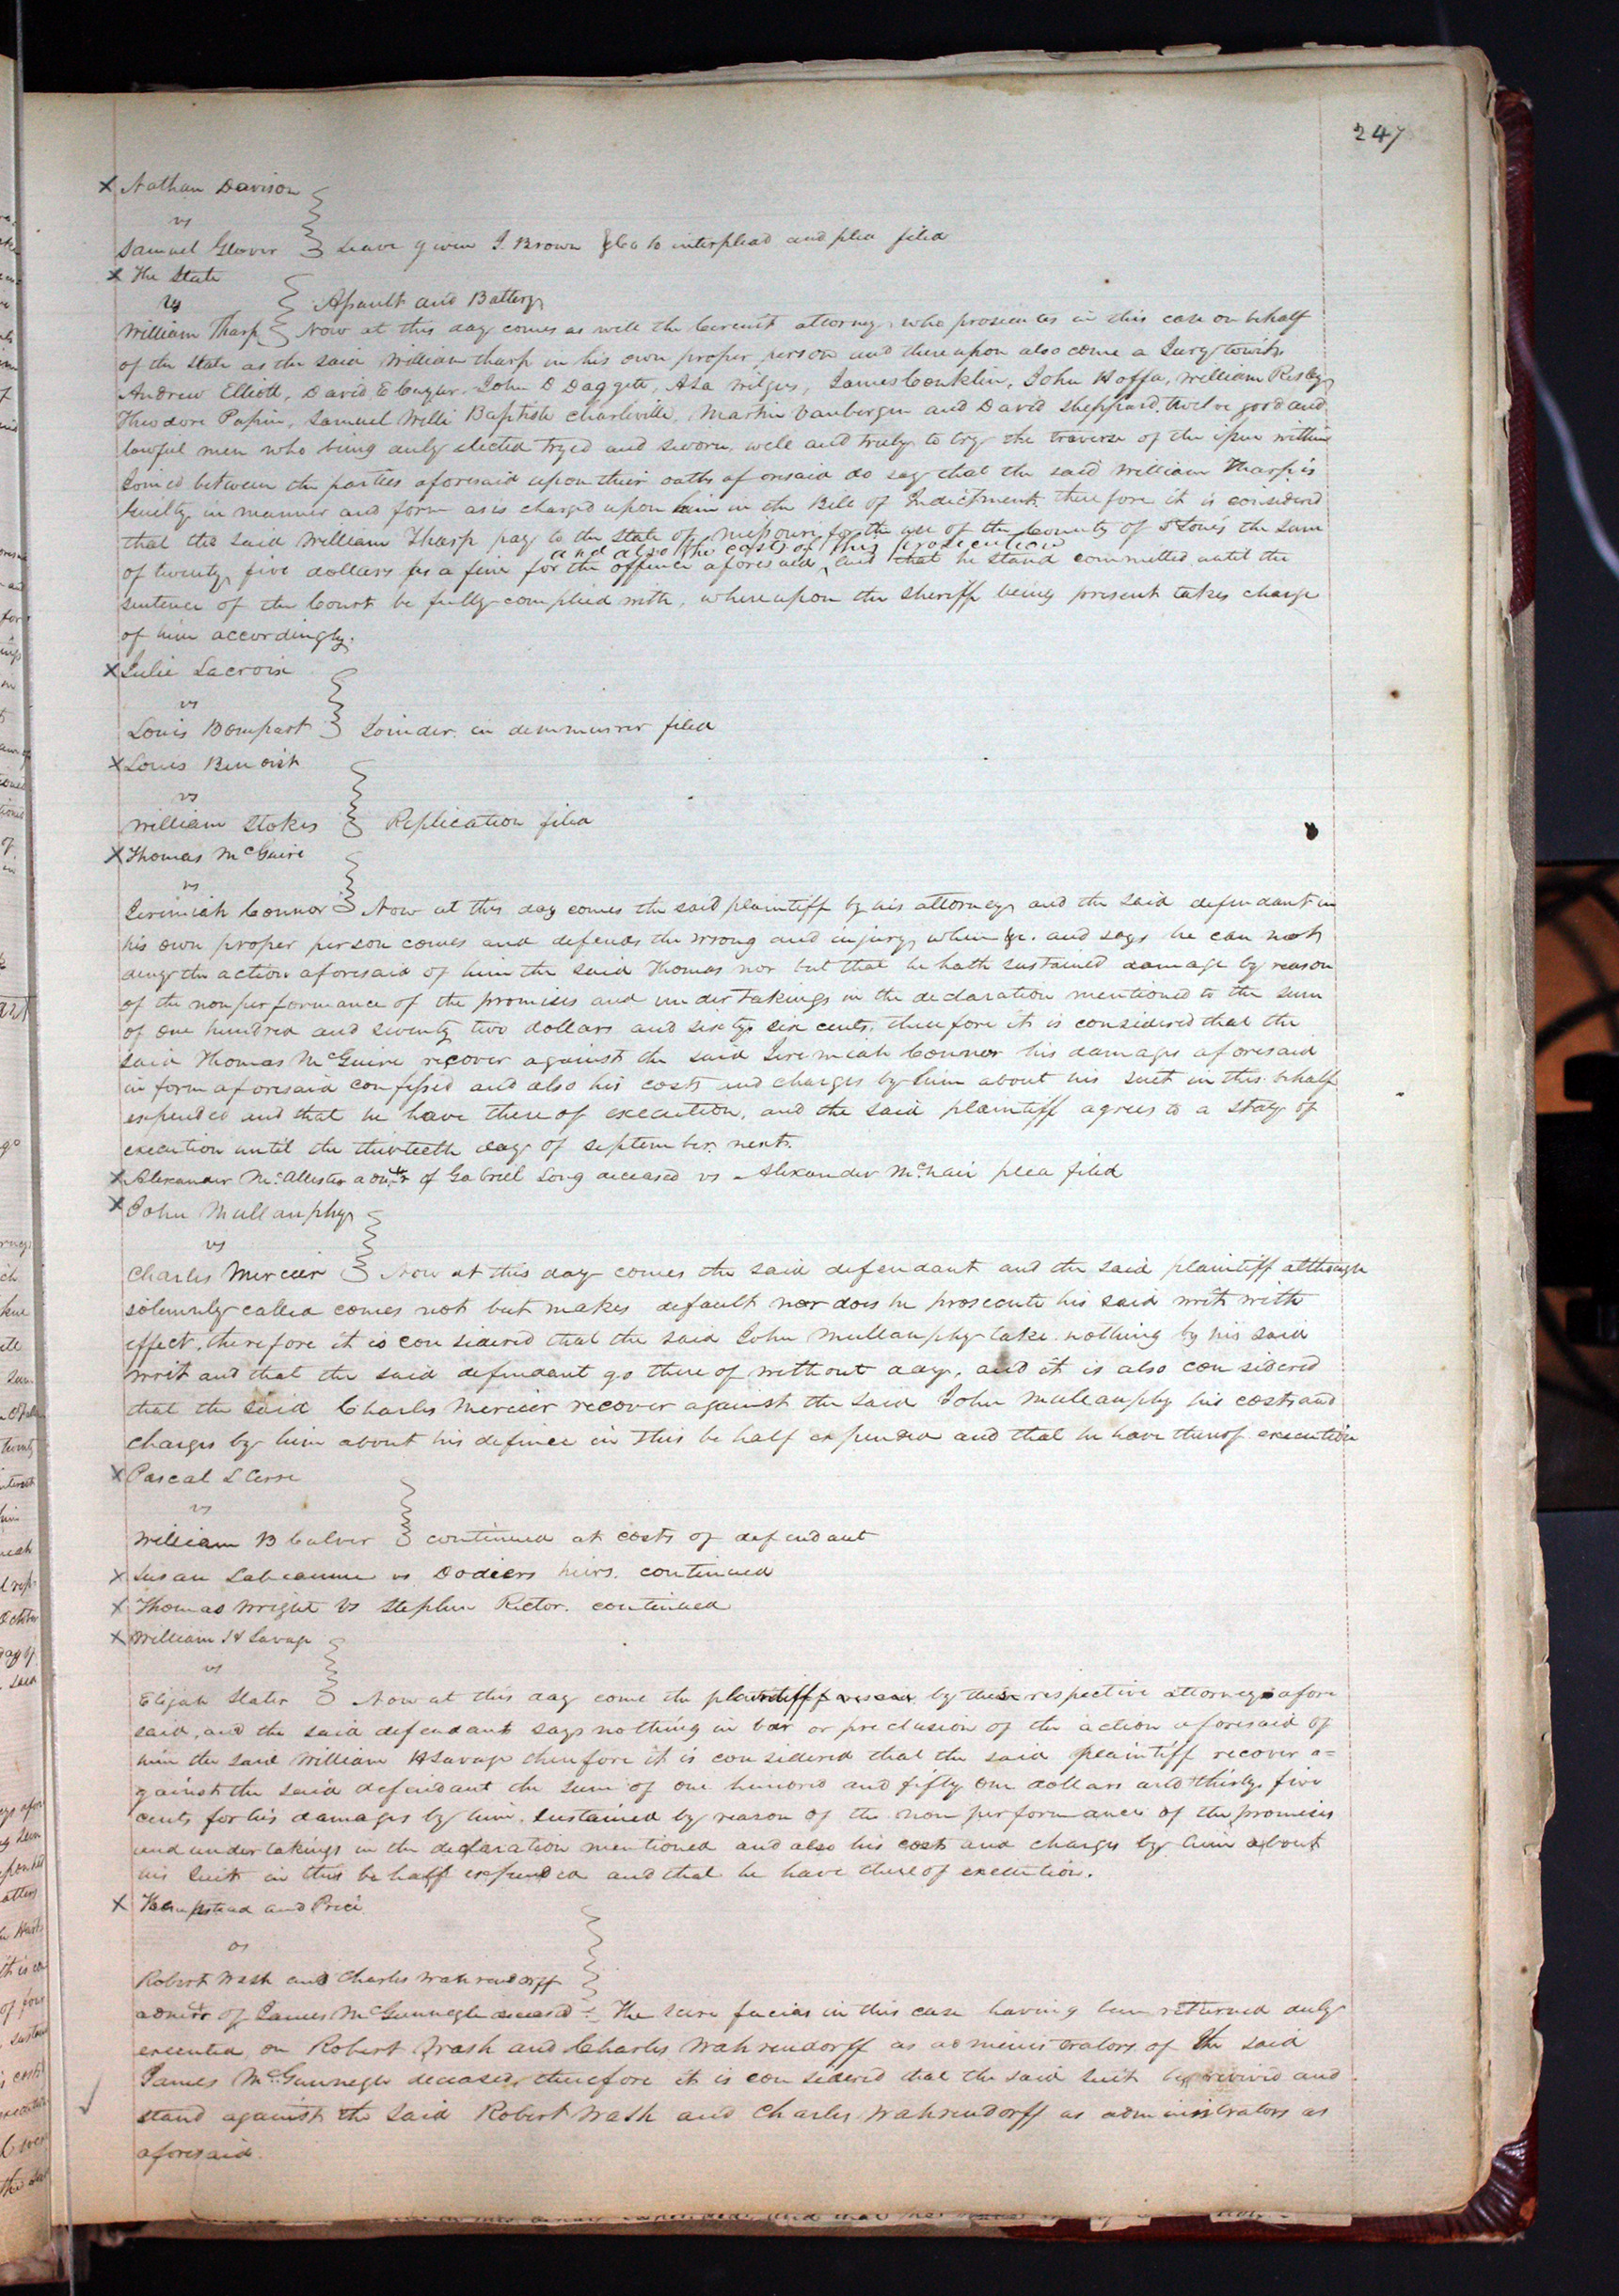 247
Nathan Davison
vs
Samuel Glover Leave given J. Brown &Co to interplead and plea filed
The State
vs Assault and Battery
William Tharp Now at this day comes as well the Circuit attorney who prosecutes in this case on behalf
of the State as the said William Tharp in his own proper person and thereupon also come a Jury towit
Andrew Elliott, David E Cuyler, John D Daggett, Asa Wilgus, James Conklin, John Hoffa, William Risley
Theodore Papin, Samuel Willi Baptiste Charleville, Martin Vanbergen and David Sheppard, twelve good and
lawful men who being duly elected tryed and sworn, well and truly to try the traverse of the issue within
Joined between the parties aforesaid upon their oaths aforesaid do say that the said William Tharp is
Guilty in manner and form as is charged upon him in the Bill of Indictment. therefore it is considered
that the said William Tharp pay to the State of Missouri for the use of the County of St Louis the sum
and also the costs of this prosecution
of twenty five dollars as a fine for the offence aforesaid, and that he stand committed until the
sentence of the Court be fully complied with, whereupon the Sheriff being present takes charge
of him accordingly.
Julie Lacroix
vs
Louis Bompart Joinder in demmurrer filed
Louis Benoist
vs
William Stokes Replication filed
Thomas McGuire
vs
Jeremiah Connor Now at this day comes the said plaintiff by his attorney and the said defendant in
his own proper person comes and defends the wrong and injury when &c. and says he can not
deny the action aforesaid of him the said Thomas nor but that he hath sustained damage by reason
of the nonperformance of the promises and undertakings in the declaration mentioned to the sum
of one hundred and seventy two dollars and sixty six cents. therefore it is considered that the
said Thomas McGuire recover against the said Jeremiah Connor his damages aforesaid
in form aforesaid confessed and also his costs and charges by him about his suit in this behalf
expended and that he have thereof execution. and the said plaintiff agrees to a stay of
execution until the thirteeth day of September next.
Alexander McAllister admtr of Gabriel Long deceased vs Alexander McNair plea filed
John Mullanphy
vs
Charles Mercier Now at this day comes the said defendant and the said plaintiff although
solemnly called comes not but makes default nor does he prosecute his said writ with
effect, therefore it is considered that the said John Mullanphy take nothing by his said
writ and that the said defendant go thereof without day, and it is also considered
that the said Charles Mercier recover against the said John Mullanphy his costs and
charges by him about his defence in this behalf expended and that he have thereof execution
Pascal L Cerre
vs
William B Culver continued at costs of defendant
Susan Labeaume vs Dodiers heirs. continued
Thomas Wright vs Stephen Rector. continued
William H Savage
vs
Elijah Slater Now at this day come the by their respective attorneys afore
said, and the said defendant says nothing in bar or preclusion of the action aforesaid of
him the said William H Savage therefore it is considered that the said plaintiff recover a=
gainst the said defendant the sum of one hundred and fifty one dollars and thirty five
cents for his damages by him sustained by reason of the non performance of the promises
and undertakings in the declaration mentioned and also his costs and charges by him about
his suit in this behalf expended and that he have thereof execution.
Hempstead and Price
vs
Robert Wash and Charles Wahrendorff
admrs of James McGunnegle deceased The scire facias in this case having been returned duly
executed on Robert Wash and Charles Wahrendorff as administrators of the said
James McGunnegle deceased, therefore it is considered that the said suit be revived and
stand against the said Robert Wash and Charles Wahrendorff as administrators as
aforesaid.